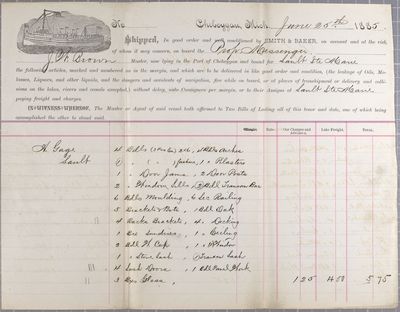 No Cheboygan, Mich. June 25th 1885
Shipped, In good order and well conditioned by SMITH & BAKER, on account and at the risk
of whom it may concern, on board the Prop. Messenger
J. W. Brown Master, now lying in the Port of Cheboygan and bound for Sault Ste Marie
the following articles, marked and numbered as in the margin, and which are to be delivered in like good order and condition, (the leakage of Oils, Mo-
lasses, Liquors, and other liquids, and the dangers and accidents of navigation, fire while on board, or at places of transhipment or delivery and colli-
sions on the lakes, rivers and canals excepted,) without delay, unto Consignees per margin, or to their Assigns at Sault Ste Marie
paying freight and charges.
IN WITNESS WHEREOF, The Master or Agent of said vessel hath affirmed to Two Bills of Lading all of this tenor and date, one of which being
accomplished the other to stand void.
Rate. Our Charges and Advances. Lake Freight. Total.
H. Gage 4 Bdls
Sault
1 Door Jams, 2 Door Posts
2 Window Sills, 2 Bdl Transom Bar
6 Bdls Moulding, 6 Sec Railing
5 Brackets & Bote, 1 Bdl Oak
4 Brackets, 4
1 Box Sundries, 1 Ceiling
2 Bdl W Cap
1 Store Sash, Transom Sash
4 Doors, 1 Bdl
3 Bxs Glass, 1 25 4 50 5 75